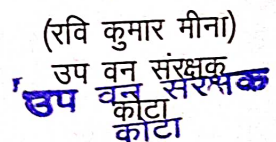 (रवि कुमार मीना)
उप वन संरक्षक
उप वन संरक्षक
कोटा
कोटा